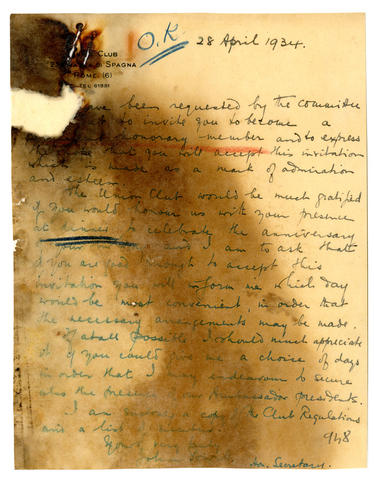 O.K. 28 April 1934.
Club
di Spagna
Rome (6)
Tel 61331
have been requested by the Committee
to invite you to become a
honorary member and to express
the that you will accept this invitation
which is made as a mark of admiration
and esteem.
The Union Club would be much gratified
if you would honour us with your presence
at dinner to celebrate the anniversary
and I am to ask that
if you are good enough to accept this
invitation you will inform me which day
would be most convenient, in order that
the necessary arrangements may be made.
If at all possible I should much appreciate
it if you could give me a choice of days
in order that I may endeavour to secure
also the presence of our Ambassador presidents.
I am a copy of the Club Regulations
and a list members.
948
Yours very
John
Hon. Secretary.